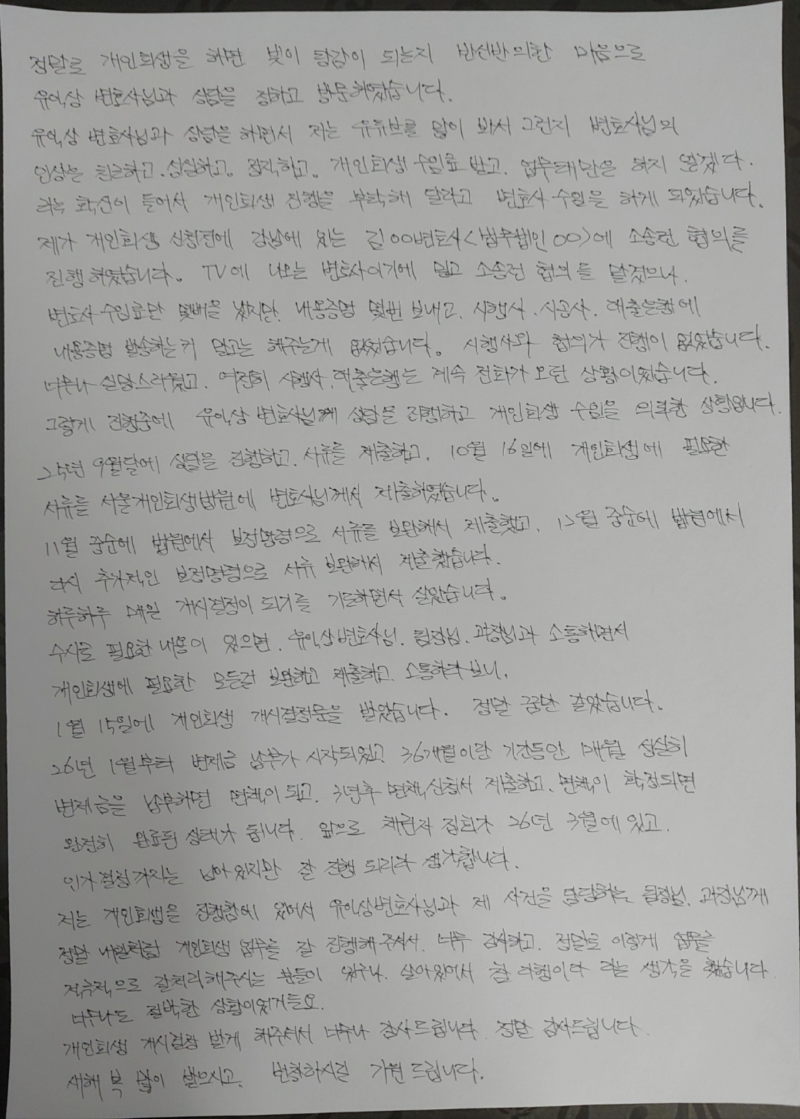 정말로 개인회생을 하면 빚이 탕감이 되는지 반신반의한 마음으로
유익상 변호사님과 상담을 정하고 방문하였습니다.
유익상 변호사님과 상담을 하면서 저는 유튜브를 많이 봐서 그런지 변호사님의
인상을 친근하고. 성실하고. 정직하고. 개인회생 수임료 받고. 업무태만은 하지 않겠다.
라는 확신이 들어서 개인회생 진행을 부탁해 달라고 변호사 수임을 하게 되었습니다.
제가 개인회생 신청전에 강남에 있는 김00변호사<법무법인 00>에 소송전 협의를
진행 하였습니다. TV에 나오는 변호사이기에 믿고 소송전 협의를 맡겼으나.
변호사 수임료만 몇백을 냈지만, 내용증명 몇번 보내고. 시행사. 시공사. 대출은행에
내용증명 발송하는거 말고는 해주는게 없었습니다. 시행사와 협의가 진행이 없었습니다.
너무나 실망스러웠고. 여전히 시행사, 대출은행는 계속 전화가 오던 상황이였습니다.
그렇게 진행중에 유익상 변호사님께 상담을 진행하고 개인회생 수임을 의뢰한 상황입니다.
25년 9월달에 상담을 진행하고. 서류를 제출하고. 10월 16일에 개인회생에 필요한
서류를 서울개인회생법원에 변호사님께서 제출하였습니다.
11월 중순에 법원에서 보정명령으로 서류를 보완해서 제출했고. 12월 중순에 법원에서
다시 추가적인 보정명령으로 서류 보완해서 제출했습니다.
하루하루 매일 개시결정이 되기를 기도하면서 살았습니다.
수시로 필요한 내용이 있으면. 유익상변호사님. 팀장님. 과장님과 소통하면서
개인회생에 필요한 모든걸 보완하고 제출하고. 소통하다 보니.
1월 15일에 개인회생 개시결정문을 받았습니다. 정말 꿈만 같았습니다.
26년 1월부터 변제금 납부가 시작되었고 36개월이란 기간동안 매월 성실히
변제금을 납부하면 면책이 되고. 3년후 면책신청서 제출하고. 면책이 확정되면
완전히 완료된 상태가 됩니다. 앞으로 채권자 집회가 26년 3월에 있고.
인가결정까지는 남아있지만 잘 진행 되리라 생각합니다.
저는 개인회생을 진행함에 있어서 유익상변호사님과 제 사건을 담당하는 팀장님. 과장님께
정말 내일처럼 개인회생 업무를 잘 진행해 주셔서. 너무 감사하고. 정말로 이렇게 업무를
적극적으로 잘처리해주시는 분들이 있구나. 살아있어서 참 다행이다 라는 생각을 했습니다
너무나도 절박한 상황이였거든요.
개인회생 개시결정 받게 해주셔서 너무나 감사드립니다. 정말 감사드립니다.
새해 복 많이 받으시고. 번창하시길 기원 드립니다.